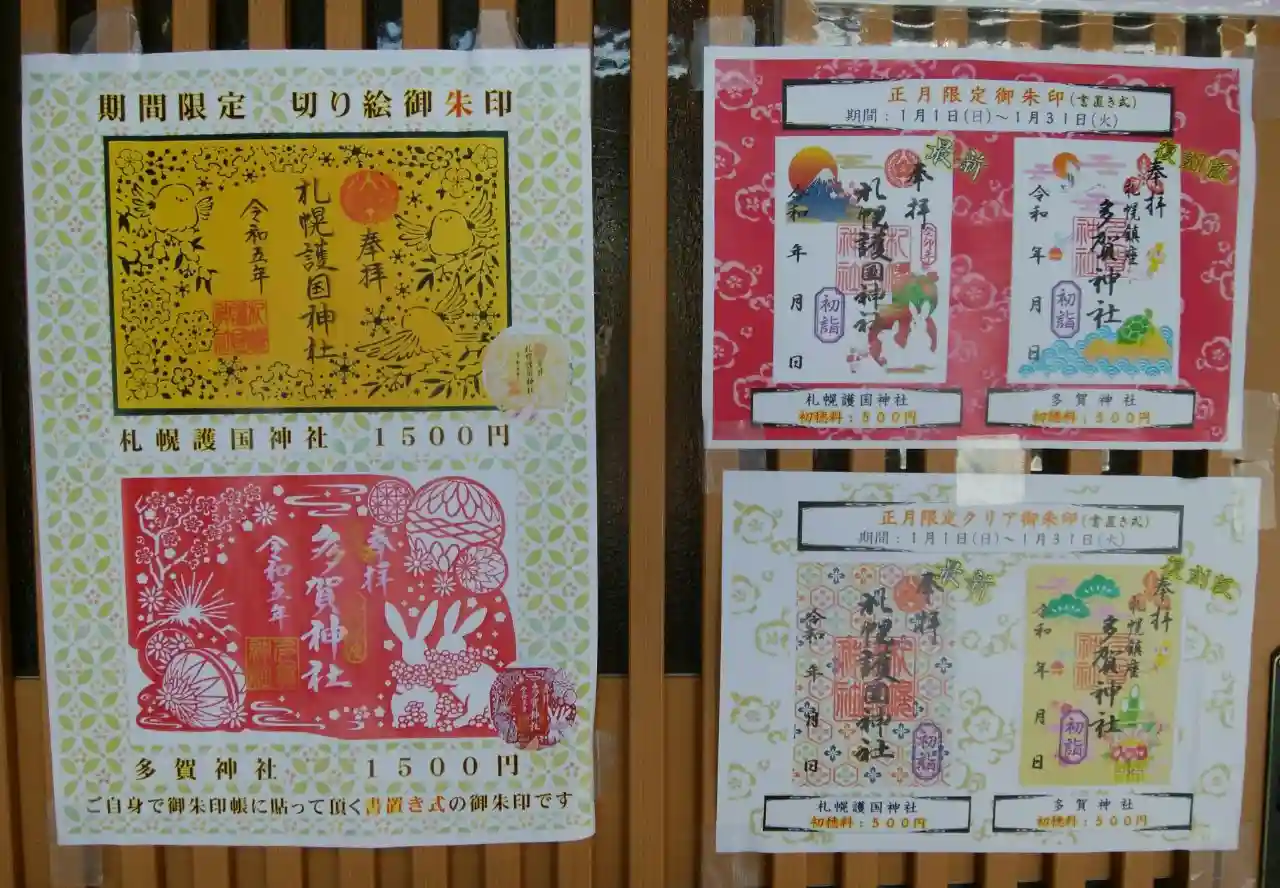 期間限定 切り絵御朱印
奉拝
札幌護国神社
令和五年
札幌護国神社 1500円
奉拝
多賀神社
令和五年
多賀神社 1500円
ご自身で御朱印帳に貼って頂く書置き式の御朱印です
正月限定御朱印(書置き式)
期間:1月1日(日)〜1月31日(火)
最新
奉拝
癸卯年
札幌護国神社
令和 年 月 日
初詣
復刻版
奉拝
札幌鎮座
多賀神社
令和 年 月 日
初詣
札幌護国神社
初穂料:500円
多賀神社
初穂料:500円
正月限定クリア御朱印(書置き式)
期間:1月1日(日)〜1月31日(火)
最新
奉拝
札幌護国神社
令和 年 月 日
初詣
復刻版
奉拝
札幌鎮座
多賀神社
令和 年 月 日
初詣
札幌護国神社
初穂料:500円
多賀神社
初穂料:500円